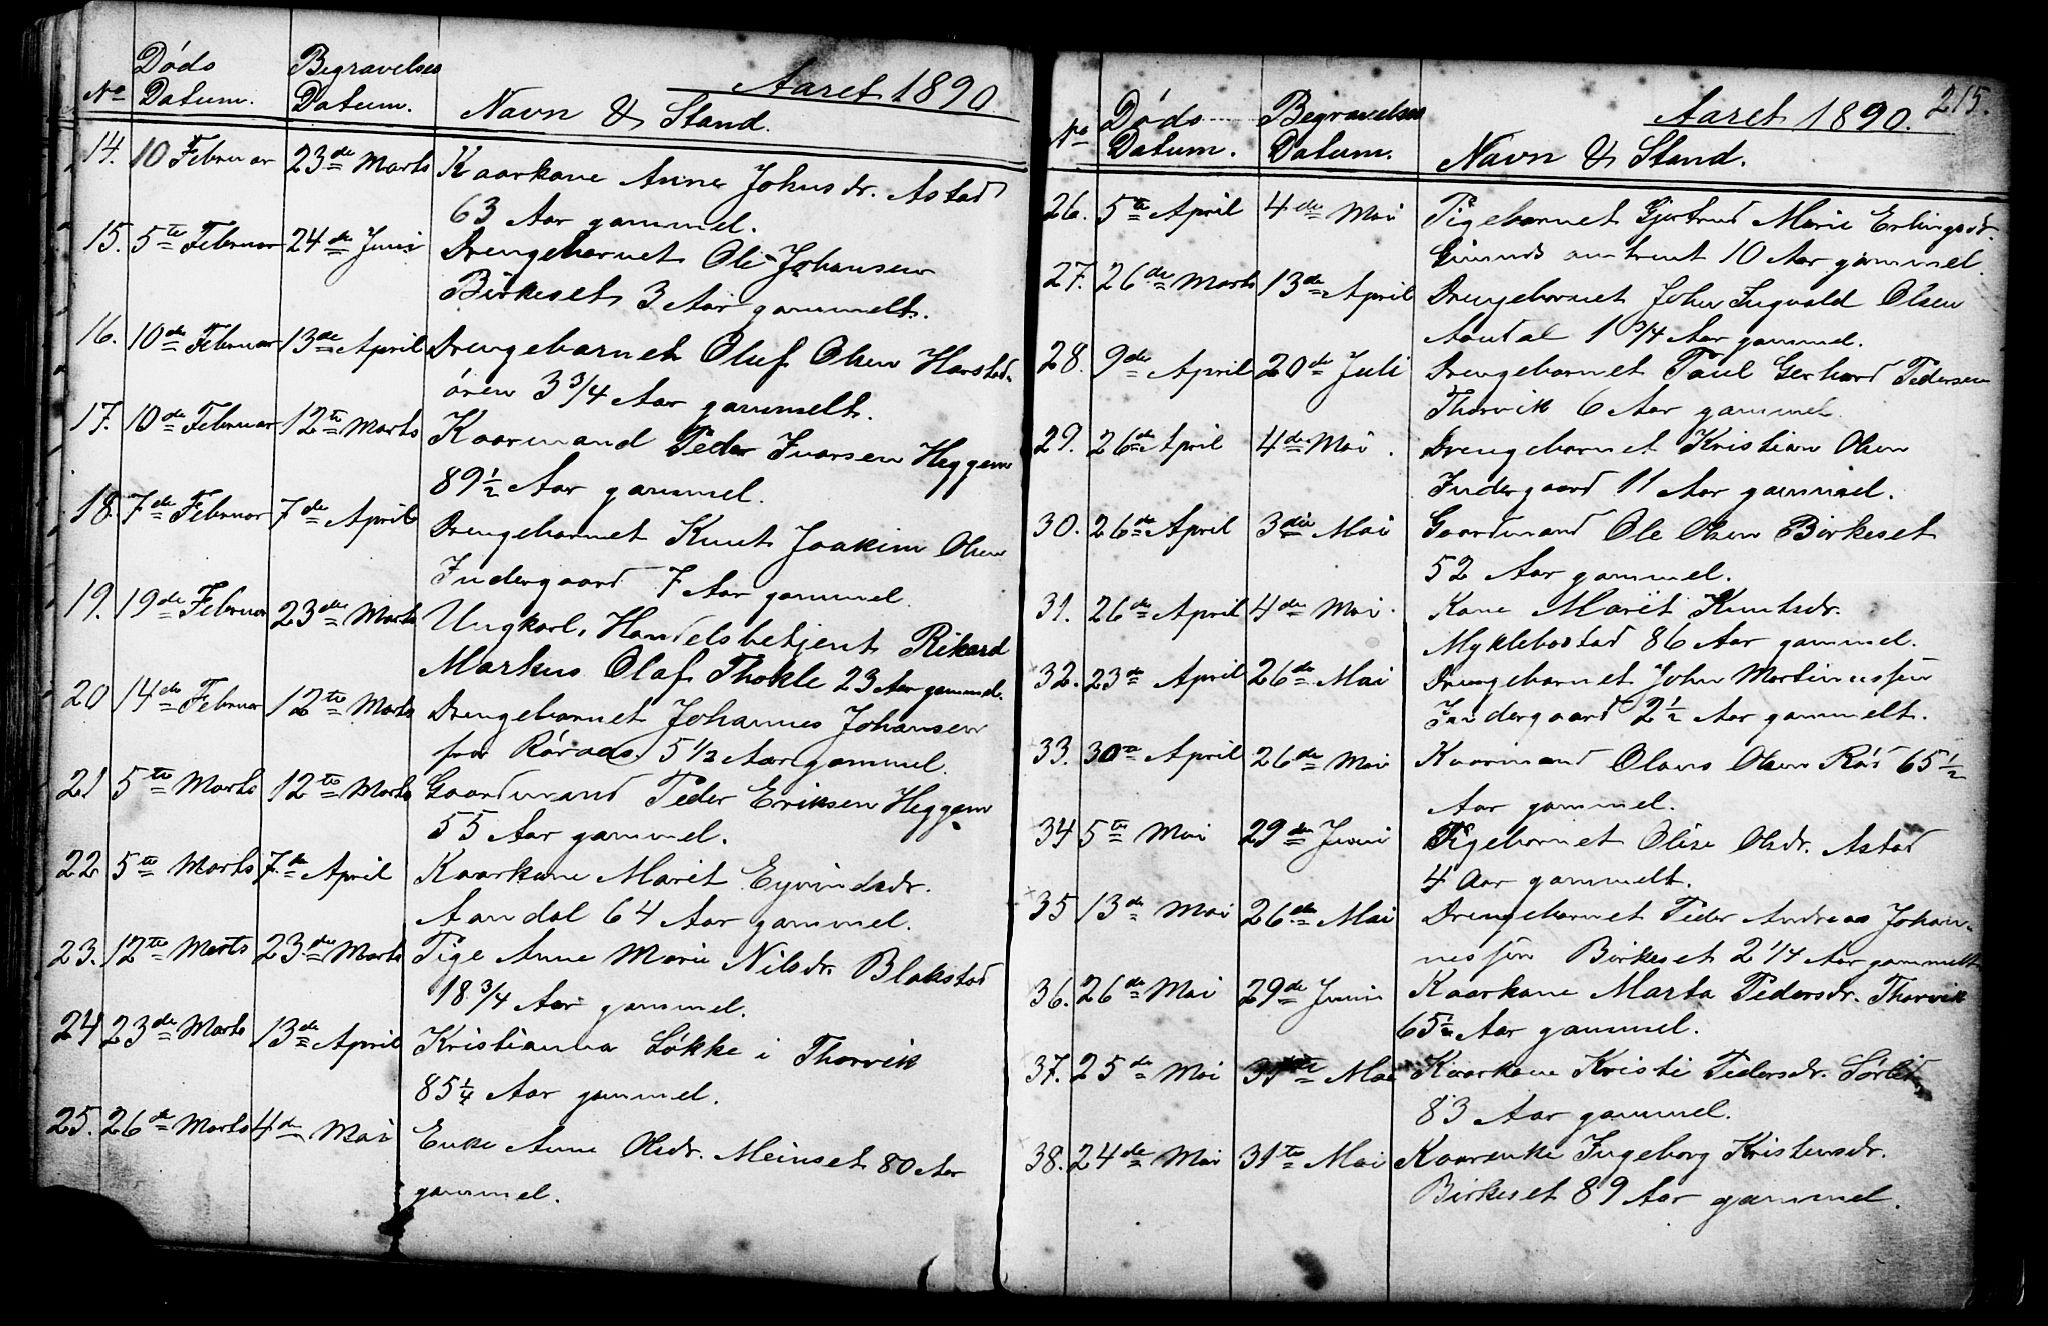 Aaret 1890
No Döds Datum. Begravelses Datum. Navn & Stand.
14. 10 Februar 23de Marts Kaarkone Anne Johnsdr. Astad
63 Aar gammel.
15. 5te Februar 24de Juni Drengebarnet Ole Johansen
Birkeset 3 Aar gammelt.
16. 10de Februar 13de April Drengebarnet Oluf Olsen Harstad-
ören 3 3/4 Aar gammelt.
17. 10de Februar 12te Marts Kaarmand Peder Ivarsen Heggem
89 1/2 Aar gammel.
18. 7de Februar 7de April Drengebarnet Knut Joakim Olsen
Indergaard 7 Aar gammel.
19. 19de Februar 23de Marts Ungkarl, Handelsbetjent Rikard
Markus Olaf Thokle 23 Aar gammel.
20 14de Februar 12te Marts Drengebarnet Johannes Johansen
fra Röraas. 5 1/2 Aar gammel.
21 5te Marts 12te Marts Gaardmand Peder Eriksen Heggem
55 Aar gammel.
22 5te Marts 7de April Kaarkone Marit Eyvindsdr.
Aandal 64 Aar gammel.
23. 12te Marts 23de Marts Pige Anne Marie Nilsdr. Blakstad
18 3/4 Aar gammel.
24 23de Marts 13de April Kristianna Lökke i Thorvik
85 1/4 Aar gammel.
25. 26de Marts 4de Mai Enke Anne Olsdr. Meinset 80 Aar
gammel.
215.
Aaret 1890.
No Döds Datum. Begravelses Datum. Navn & Stand.
26. 5te April 4de Mai Pigebarnet Gjertrud Marie Erlingsdr.
omtrent 10 Aar gammel.
27. 26de Marts 13de April Drengebarnet John Ingvald Olsen
Aandal 1 3/4 Aar gammel.
28. 9de April 20de Juli Drengebarnet Paul Gerhard Pedersen
Thorvik 6 Aar gammel
29. 26de April 4de Mai. Drengebarnet Kristian Olsen
Indergaard 11 Aar gammel.
30. 26de April 3die Mai Gaardmand Ole Olsen Birkeset
52 Aar gammel.
31. 26de April 4de Mai. Kone Marit Knutsdr.
Myklebostad 86 Aar gammel.
32. 23de April 26de Mai Drengebarnet John Martinussen
Indergaard 2 1/2 Aar gammelt.
33. 30te April 26de Mai Kaarmand Olaus Olsen Röd 65 1/2
Aar gammel.
34 5te Mai 29de Juni Pigebarnet Olise Olsdr. Astad
4 Aar gammelt.
35 13de Mai 26de Mai Drengebarnet Peder Andreas Johan-
nessen Birkeset 2 1/4 Aar gammelt
36. 26de Mai 29de Juni Kaarkone Marta Pedersdr. Thorvik
65 1/2 Aar gammel.
37. 25de Mai 31te Mai Kaarkone Kristi Pedersdr.
83 Aar gammel.
38. 24de Mai 31te Mai Kaarenke Ingeborg Kristensdr.
Birkeset 89 Aar gammel.